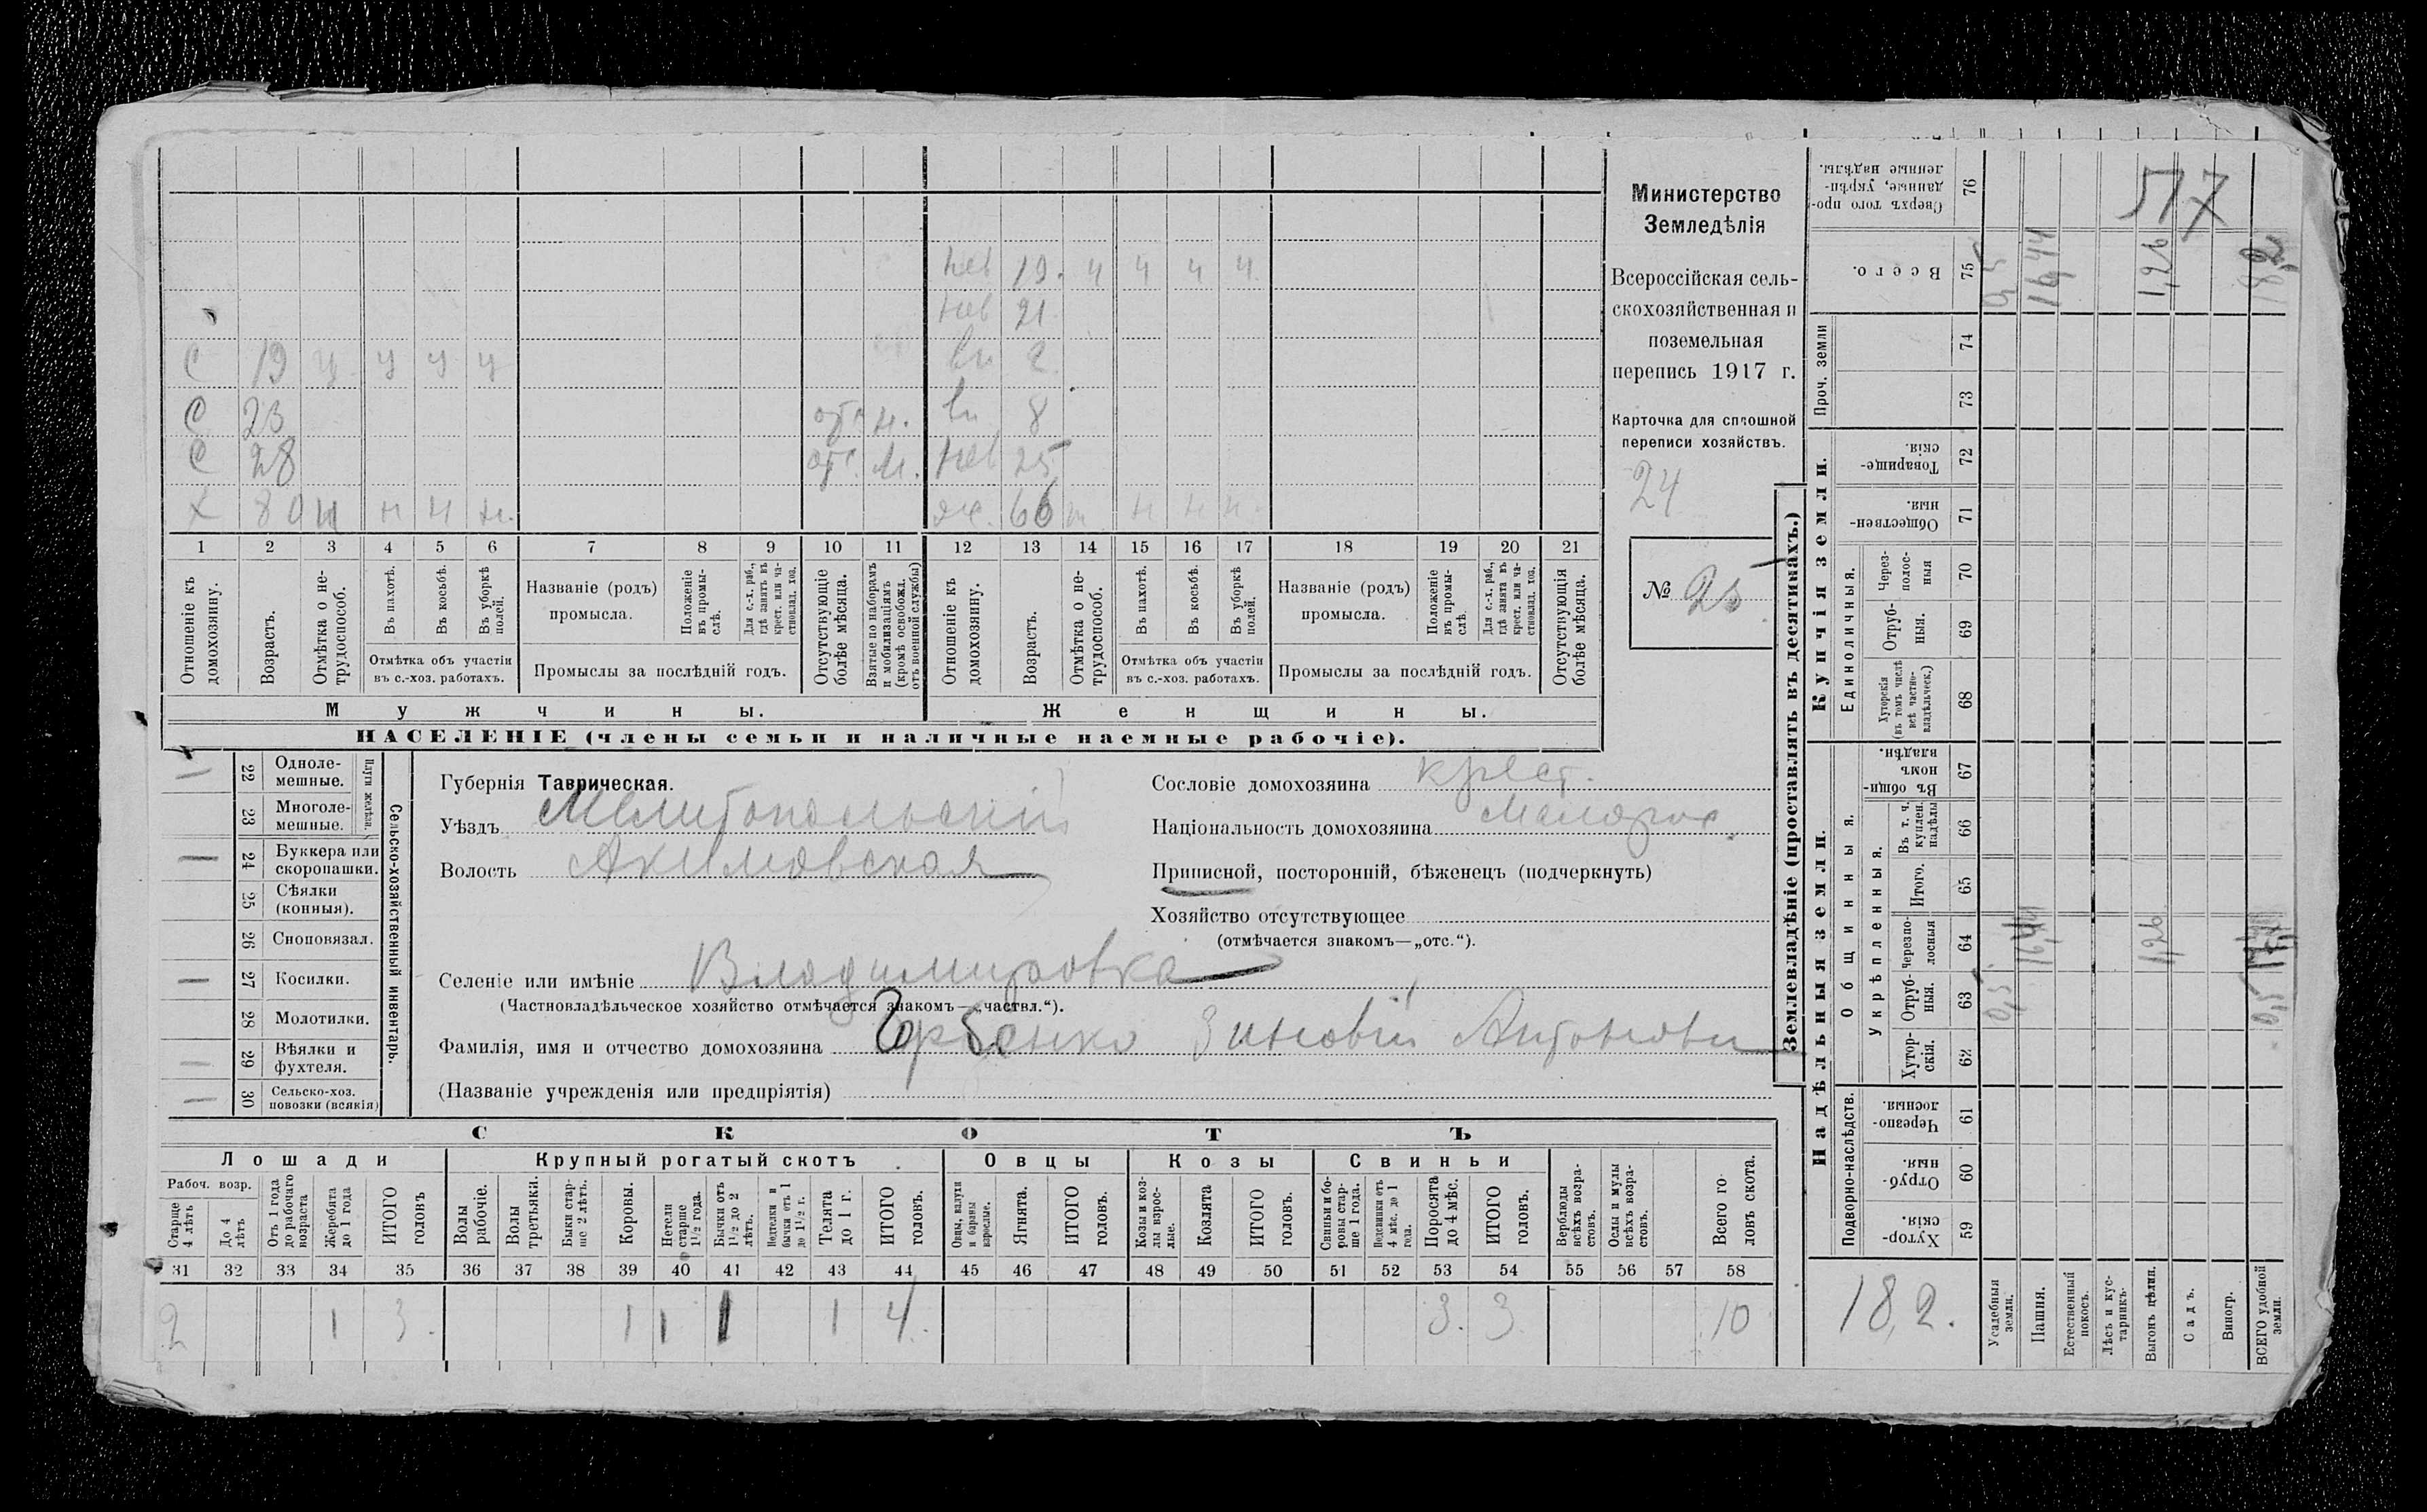 Министерство
Земледѣлія
Всероссійская сель-
скохозяйственная и
поземельная
перепись 1917 г.
Карточка для сплошной
переписи хозяйствъ.
24
№ 25
517
нев 19. ч ч ч ч.
нев 21
С 19 ч ч ч ч вн 2
С 23 отс н. вн 8
С 28 отс. м. нев 25
Х 80 н н н н. ж. 66 н н н н
1 2 3 4 5 6 7 8 9 10 11 12 13 14 15 16 17 18 19 20 21
Отношеніе къ домохозяину.
Возрастъ.
Отмѣтка о не-трудоспособ.
Въ пахотѣ.
Въ косьбѣ.
Въ уборкѣ полей.
Отмѣтка объ участіи
въ с.-хоз. работахъ.
Названіе (родъ)
промысла.
Положеніе въ промы-слѣ.
Для с.-х. раб., гдѣ занятъ въ крест. или ча-стновлад. хоз.
Промыслы за послѣдній годъ.
Отсутствующіе болѣе мѣсяца.
Взятые по наборамъ и мобилизаціямъ (кромѣ освобожд. отъ военной службы)
Отношеніе къ домохозяину.
Возрастъ.
Отмѣтка о не-трудоспособ.
Въ пахотѣ.
Въ косьбѣ.
Въ уборкѣ полей.
Отмѣтка объ участіи
въ с.-хоз. работахъ.
Названіе (родъ)
промысла.
Положеніе въ промы-слѣ.
Для с.-х. раб., гдѣ занята въ крест. или ча-стновлад. хоз.
Промыслы за послѣдній годъ.
Отсутствующія болѣе мѣсяца.
Мужчины. Женщины.
НАСЕЛЕНІЕ (члены семьи и наличные наемные рабочіе).
Сельско-хозяйственный инвентарь.
Плуги желѣзн.
22 Одноле-мешные.
23 Многоле-мешные.
24 Буккера или скоропашки.
25 Сѣялки (конныя).
26 Сноповязал.
27 Косилки.
28 Молотилки.
29 Вѣялки и фухтеля.
30 Сельско-хоз. повозки (всякія)
Губернія Таврическая.
Уѣздъ Мелитопольскій
Волость Акимовская
Селеніе или имѣніе Владимировка
(Частновладѣльческое хозяйство отмѣчается знакомъ—„частвл.“).
Фамилія, имя и отчество домохозяина Горбенко Зиновій Антонови
(Названіе учрежденія или предпріятія)
Сословіе домохозяина крест.
Національность домохозяина Малорос.
Приписной, посторонній, бѣженецъ (подчеркнуть)
Хозяйство отсутствующее
(отмѣчается знакомъ—„отс.“).
СКОТЪ
Лошади Крупный рогатый скотъ. Овцы Козы Свиньи
Рабоч. возр.
Старше 4 лѣтъ
До 4 лѣтъ
Отъ 1 года до рабочаго возраста
Жеребята до 1 года
ИТОГО головъ
Волы рабочіе.
Волы третьяки.
Быки стар-ше 2 лѣтъ.
Коровы.
Нетели старше 1½ года.
Бычки отъ 1½ до 2 лѣтъ.
Нетелки и бычки отъ 1 до 1½ г.
Телята до 1 г.
ИТОГО головъ.
Овцы, валухи и бараны взрослые.
Ягнята.
ИТОГО головъ.
Козы и коз-лы взрос-лые.
Козлята
ИТОГО головъ.
Свиньи и бо-ровы стар-ше 1 года.
Подсвинки отъ 4 мѣс. до 1 года.
Поросята до 4 мѣс.
ИТОГО головъ.
Верблюды всѣхъ возра-стовъ.
Ослы и мулы всѣхъ возра-стовъ.
Всего го-ловъ скота.
31 32 33 34 35 36 37 38 39 40 41 42 43 44 45 46 47 48 49 50 51 52 53 54 55 56 57 58
2 1 3. 1 1 1 1 4. 3. 3 10
Землевладѣніе (проставлять въ десятинахъ.)
Надѣльныя земли. Купчія земли. Проч. земли
Подворно-наслѣдств.
Общинныя.
Укрѣпленныя.
Единоличныя.
59 Хутор-скія.
60 Отруб-ныя.
61 Черезпо-лосныя.
62 Хутор-скія.
63 Отруб-ныя.
64 Черезпо-лосныя
65 Итого.
66 Въ т. ч. куплен. надѣлы
67 Въ общи-номъ владѣн.
68 Хуторскія (въ томъ числѣ всѣ частно-владѣльческ.)
69 Отруб-ныя.
70 Через-полос-ныя
71 Обществен-ныя.
72 Товарище-скія.
73
74
75 Всего.
76 Сверхъ того про-данные, укрѣп-ленные надѣлы.
18,2.
Усадебныя земли. 0,5 0,5
Пашня. 16,44 16,44
Естественный покосъ.
Лѣсъ и кус-тарникъ.
Выгонъ цѣлин. 1,26 1,26
Садъ.
Виногр.
ВСЕГО удобной земли. 0,5